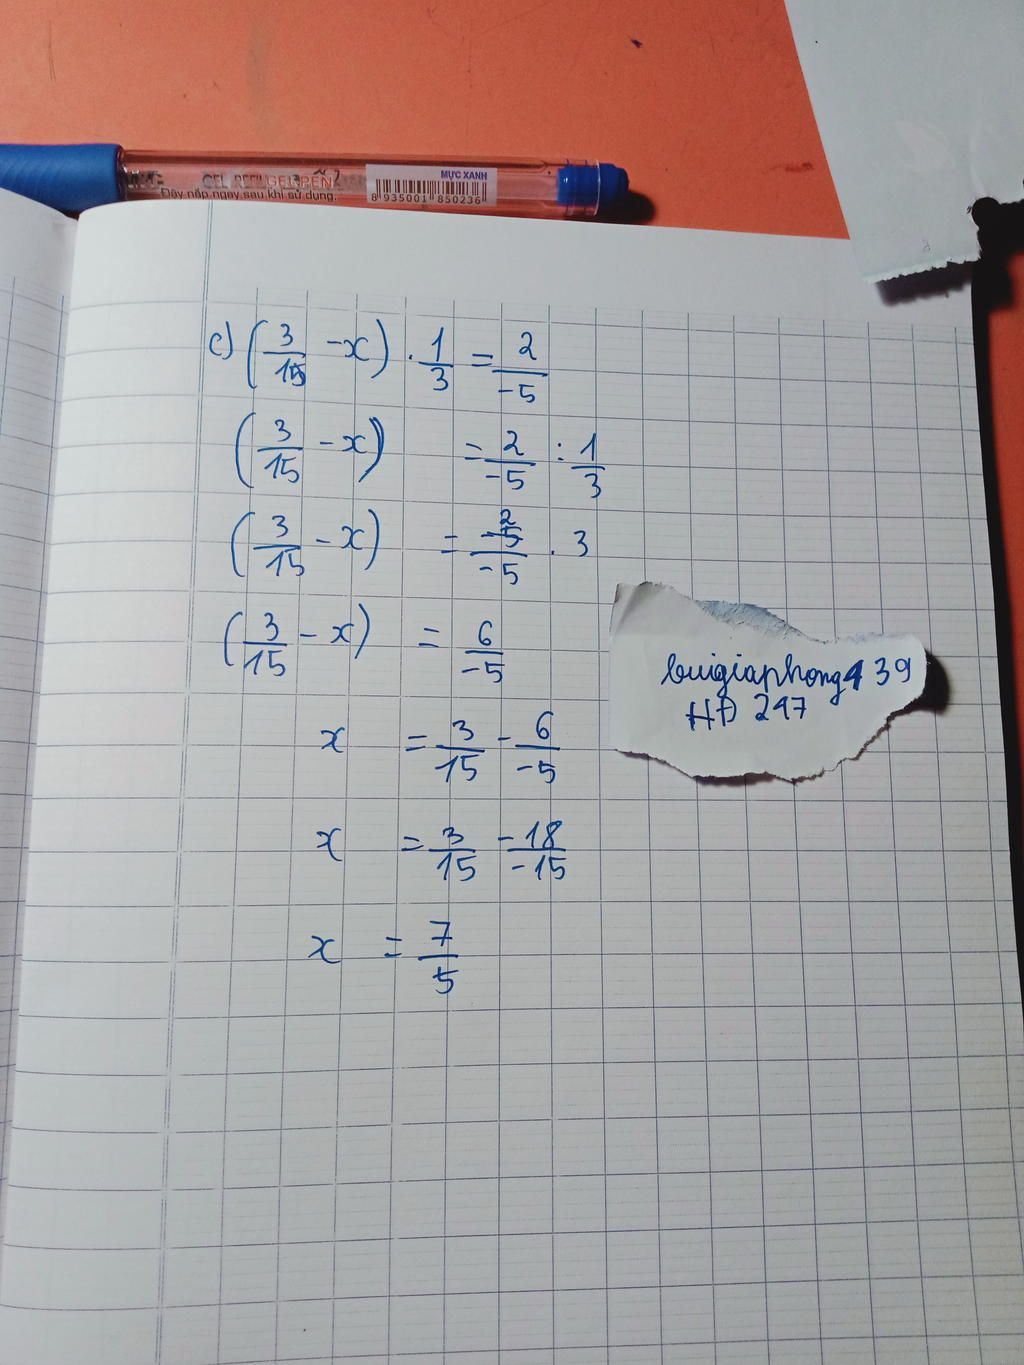 GEL REFILL GEL PEN
MỰC XANH
Đậy nắp ngay sau khi sử dụng.
8 935001 850236
c) (3/15 - x) . 1/3 = 2/-5
(3/15 - x) = 2/-5 : 1/3
(3/15 - x) = 2/-5 . 3
(3/15 - x) = 6/-5
x = 3/15 - 6/-5
x = 3/15 - 18/-15
x = 7/5
buigiaphong439
HĐ 247